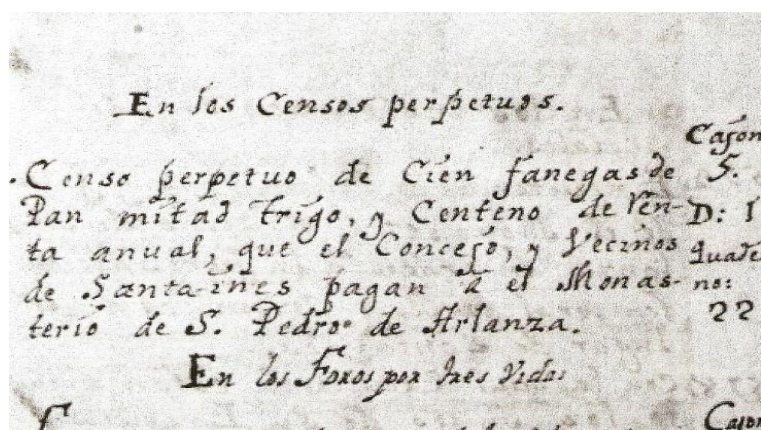 En los Censos perpetuos.
Censo perpetuo de Cien fanegas de
Pan mitad trigo, y Centeno de Ren-
ta anual, que el Concejo, y Vecinos
de Santa-ines pagan à el Monas-
terio de S. Pedro de Arlanza.
Cajon
5.
D: 1
quade
no:
22
En los Foros por tres Vidas
Cajon